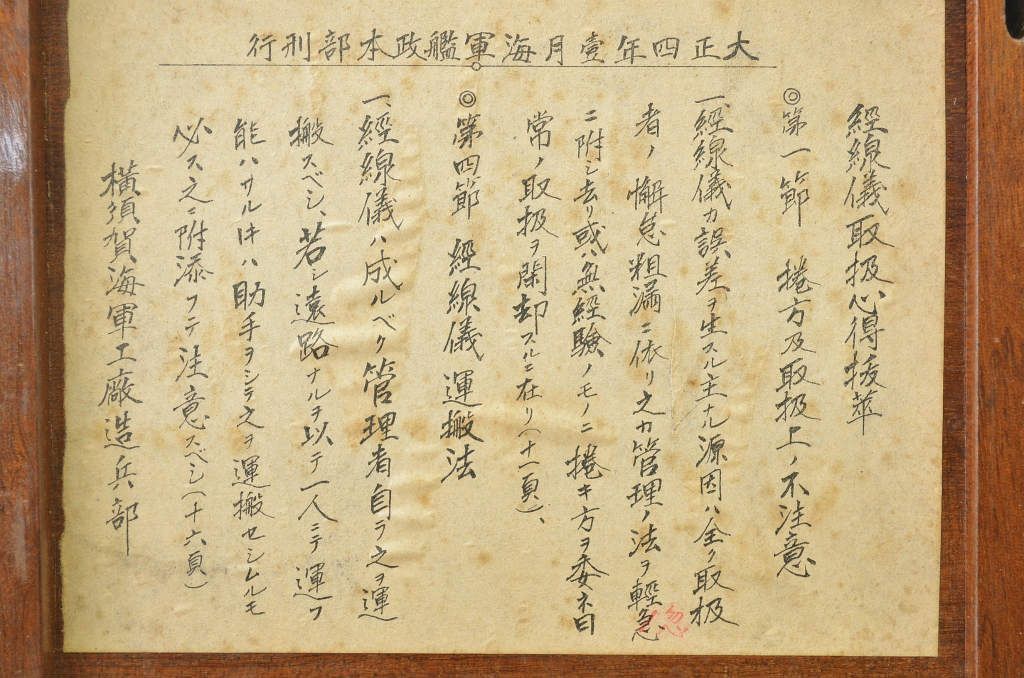 大正四年壹月海軍艦政本部刊行
經線儀取扱心得抜萃
◎第一節 捲方及取扱上ノ不注意
一、經線儀カ誤差ヲ生スル主ナル源因ハ全ク取扱
者ノ懈怠粗漏ニ依リ之カ管理ノ法ヲ輕急、
忽
ニ附シ去リ或ハ無經験ノモノニ捲キ方ヲ委ネ日
常ノ取扱ヲ閑却スルニ在リ(十一頁)、
◎第四節 經線儀運搬法
一、經線儀ハ成ルベク管理者自ラ之ヲ運
搬スベシ、若シ遠路ナルヲ以テ一人ニテ運フ
能ハサルトキハ助手ヲシテ之ヲ運搬セシムルモ
必ス之ニ附添フテ注意スベシ(十六頁)
横須賀海軍工廠造兵部